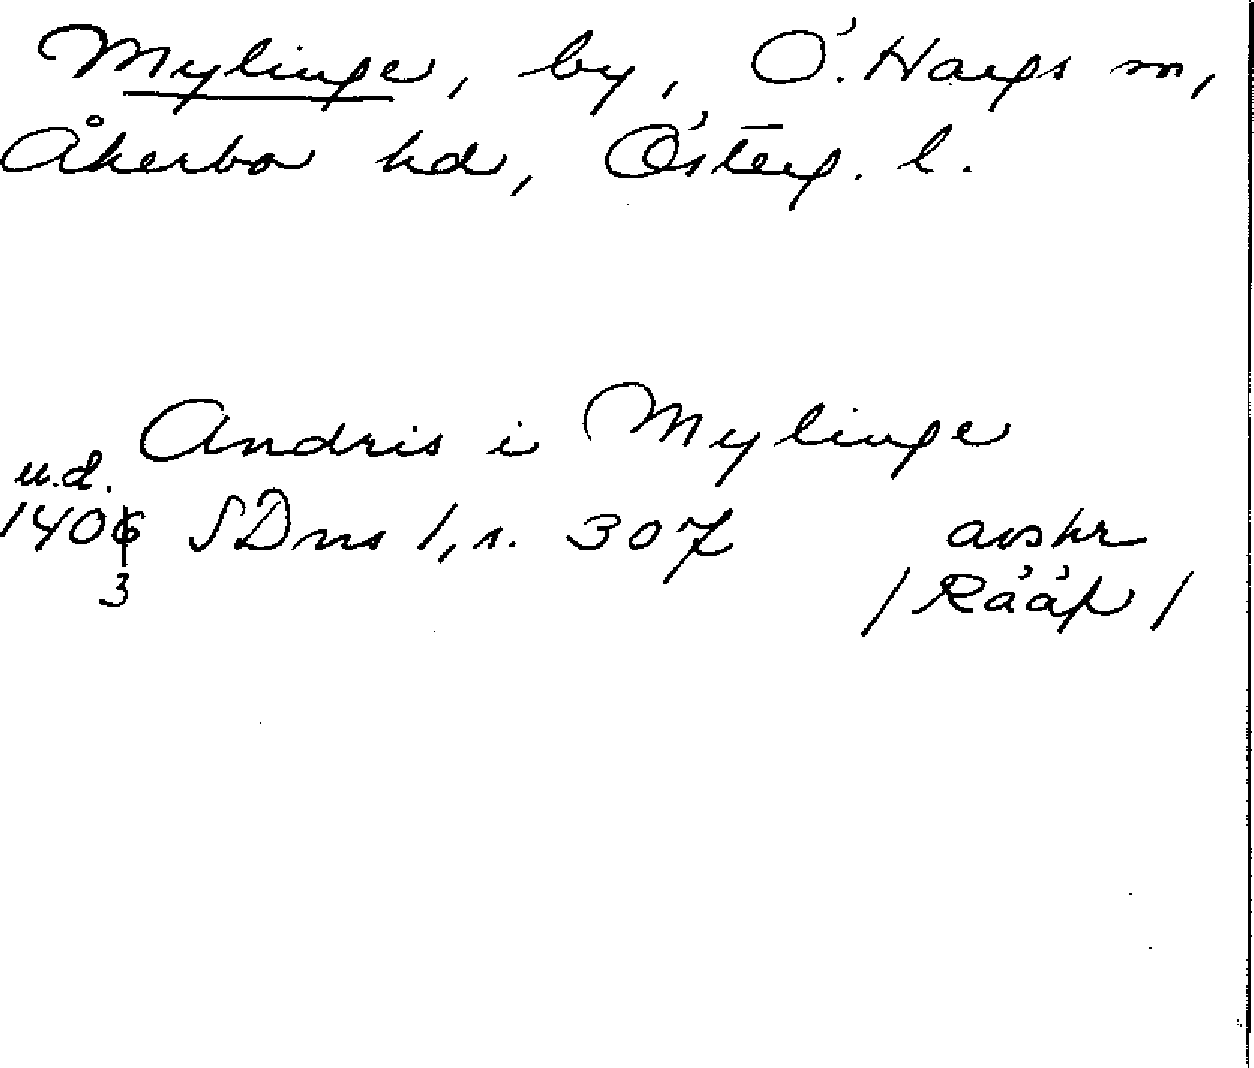 Mylinge, by, Ö. Hargs sn,
Åkerbo hd, Österg. l.
Andris i Mylinge
u.d.
1406 SDns 1, s. 307 avskr
3 /Rääp/